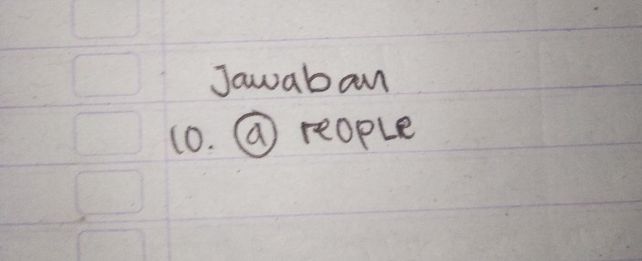 Jawaban
10. a reople